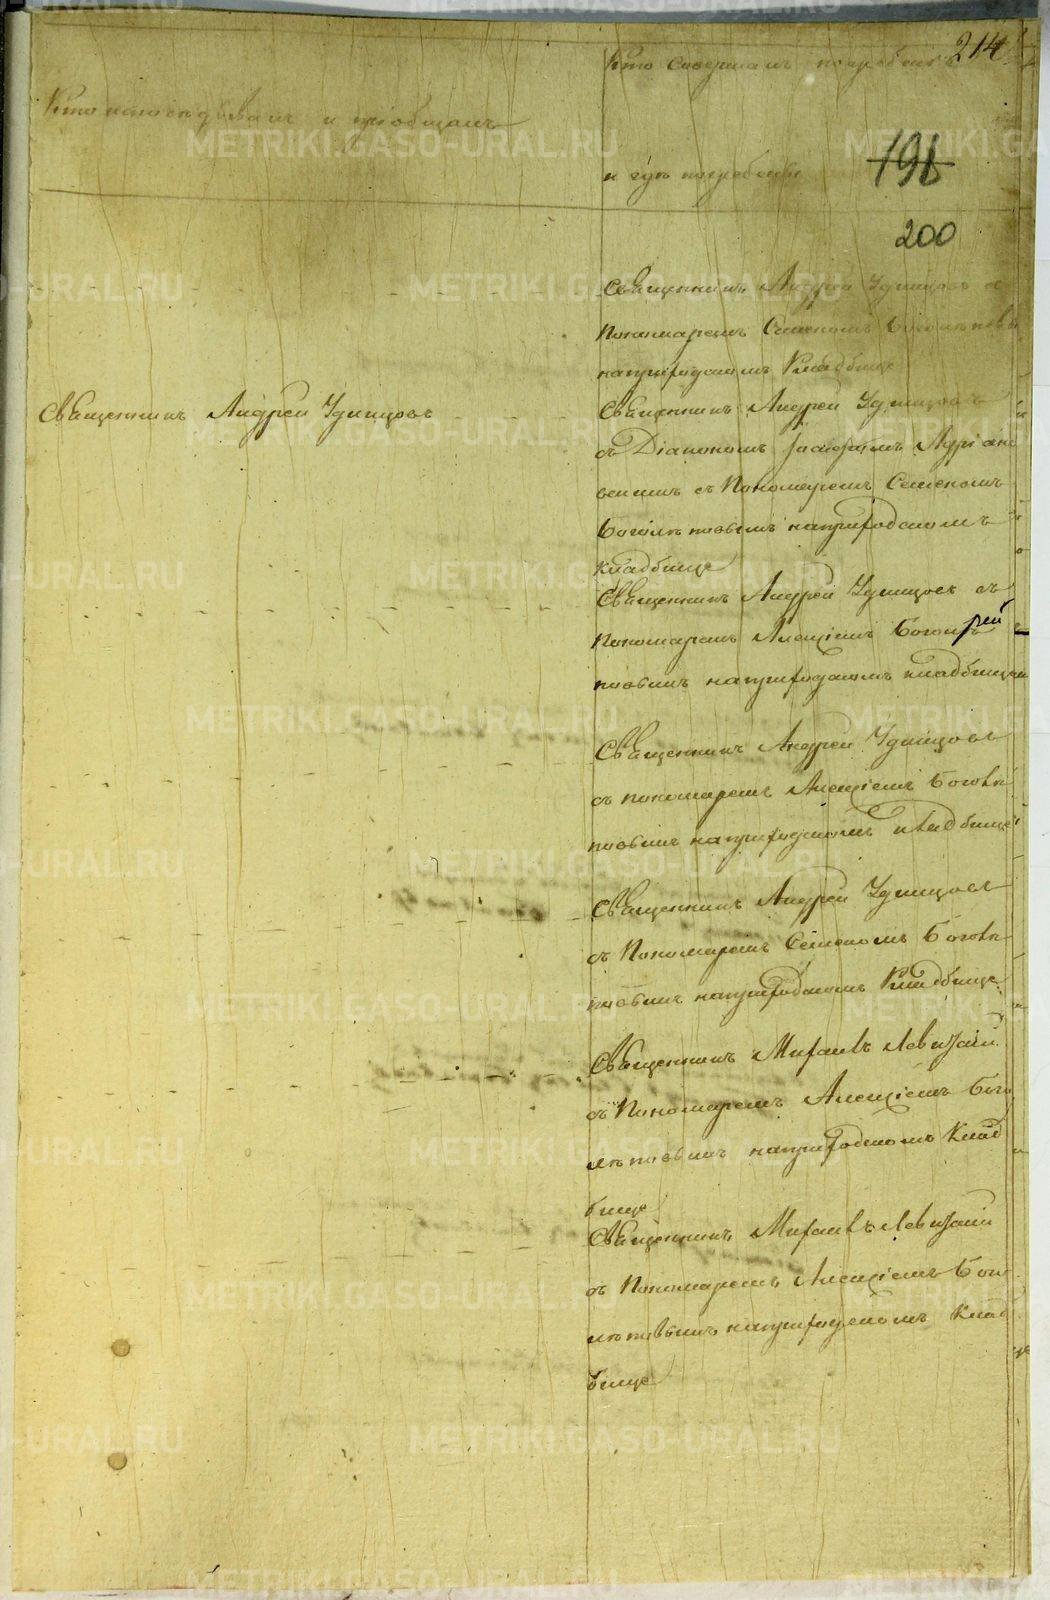 214
Кто исповѣдывалъ и прiобщалъ
Кто совершалъ погребенiе
и гдѣ погребены
196
200
Священникъ Андрей Удинцовъ съ
Пономаремъ Семеномъ Боголѣповы
наприходскомъ Кладбище
Священникъ Андрей Удинцовъ
Священникъ Андрей Удинцовъ
съ Дiакономъ
съ Пономаремъ Семеномъ
Боголѣповымъ наприходскомъ
кладбище
Священникъ Андрей Удинцовъ съ
Пономаремъ Алексiемъ Боголѣ
повымъ наприходскомъ кладбище
Священникъ Андрей Удинцовъ
съ пономаремъ Алексiемъ Боголѣ
повымъ наприходскомъ кладбище
Священникъ Андрей Удинцовъ
съ Пономаремъ Семеномъ Боголѣ
повымъ наприходскомъ Кладбище
Священникъ Михаилъ Левицкiй
съ Пономаремъ Алексiемъ Бого
лѣповымъ наприходскомъ Клад
бище
Священникъ Михаилъ Левицкiй
съ Пономаремъ Алексiемъ Бого
лѣповымъ наприходскомъ Клад
бище
METRIKI.GASO-URAL.RU